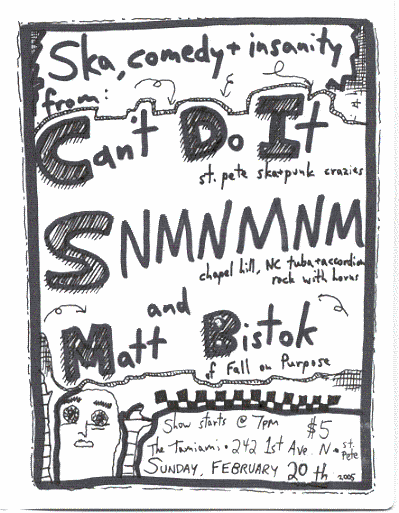 Ska, comedy + insanity
from:
Can't Do It
st. pete ska+punk crazies
SNMNMNM
chapel hill, NC tuba+accordion
rock with horns
and
Matt Bistok
of Fall on Purpose
Show starts @ 7pm $5
The Tamiami • 242 1st Ave. N • st. Pete
SUNDAY, FEBRUARY 20th 2005